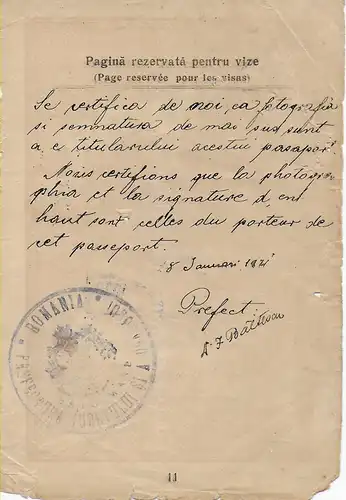 Pagină rezervată pentru vize
(Page reservée pour les visas)
Se certifica de noi, ca fotografia
si semnatura de mai sus sunt
a e titularului acestui pasaport
Nous certifions que la photogra-
phia et la signature d'en
haut sont celles du porteur de
cet passeport.
8 Januari 192
Prefect:
ROMANIA
PREFECTURA JUDEȚULUI
11